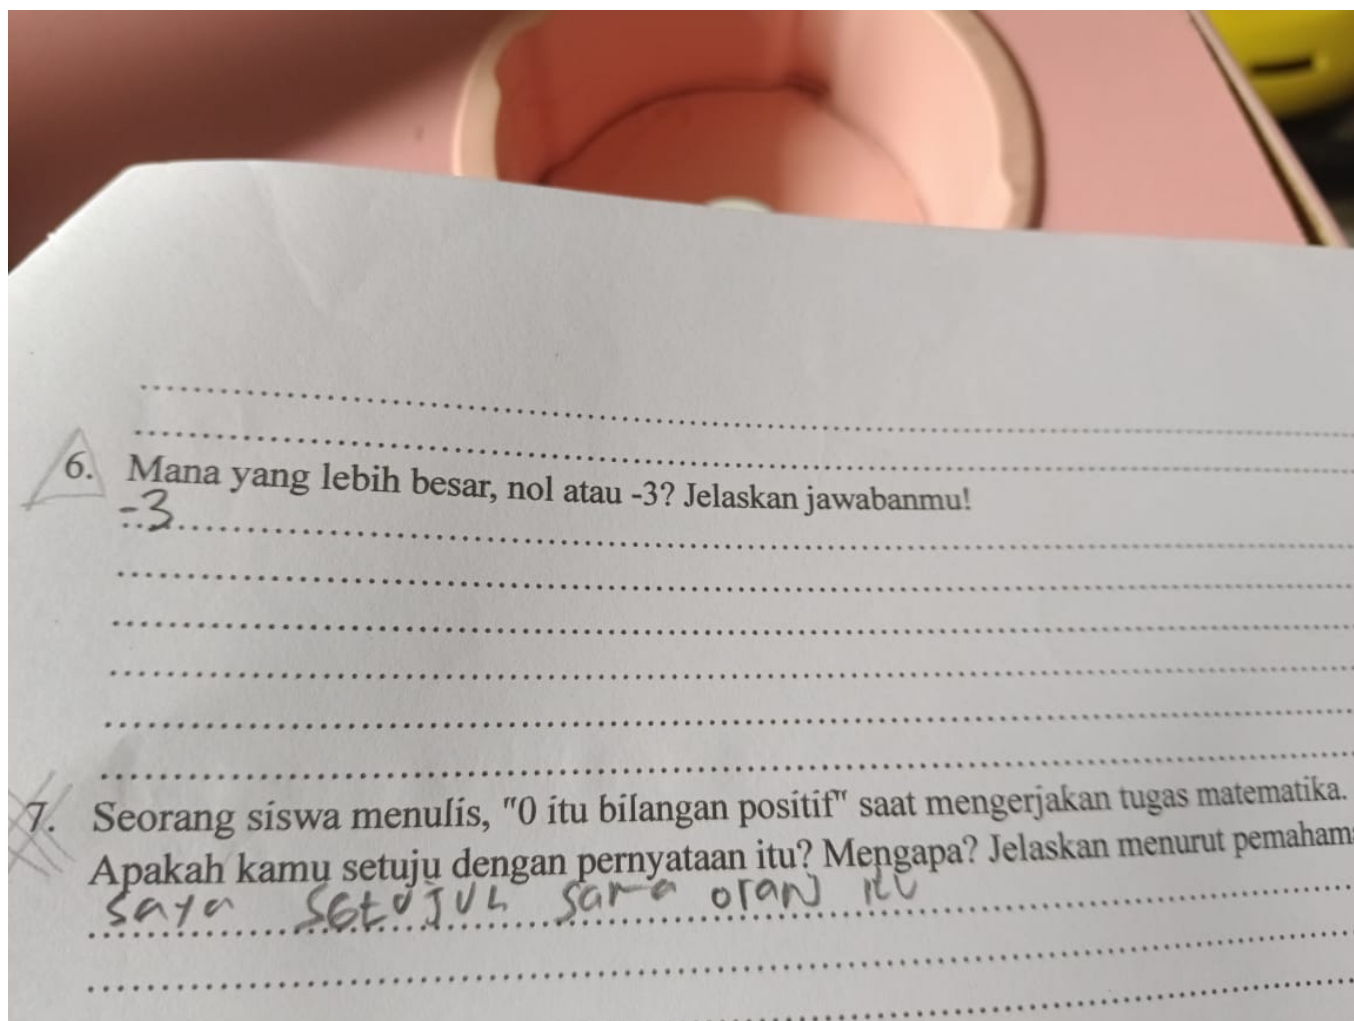 6. Mana yang lebih besar, nol atau -3? Jelaskan jawabanmu!
-3
7. Seorang siswa menulis, "0 itu bilangan positif" saat mengerjakan tugas matematika.
Apakah kamu setuju dengan pernyataan itu? Mengapa? Jelaskan menurut
saya setujuh sara oran itu